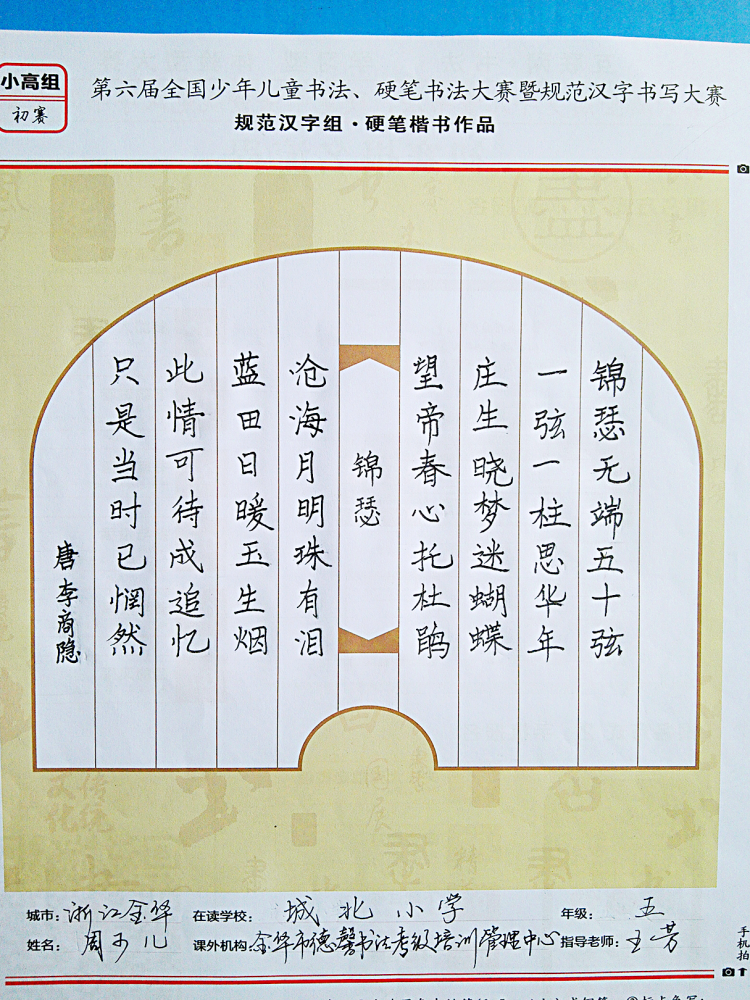 小高组
初赛
第六届全国少年儿童书法、硬笔书法大赛暨规范汉字书写大赛
规范汉字组·硬笔楷书作品
锦瑟无端五十弦
一弦一柱思华年
庄生晓梦迷蝴蝶
望帝春心托杜鹃
锦瑟
沧海月明珠有泪
蓝田日暖玉生烟
此情可待成追忆
只是当时已惘然
唐李商隐
城市: 浙江金华 在读学校: 城北小学 年级: 五
姓名: 周可儿 课外机构: 金华市德馨书法考级培训管理中心 指导老师: 王芳
手机拍